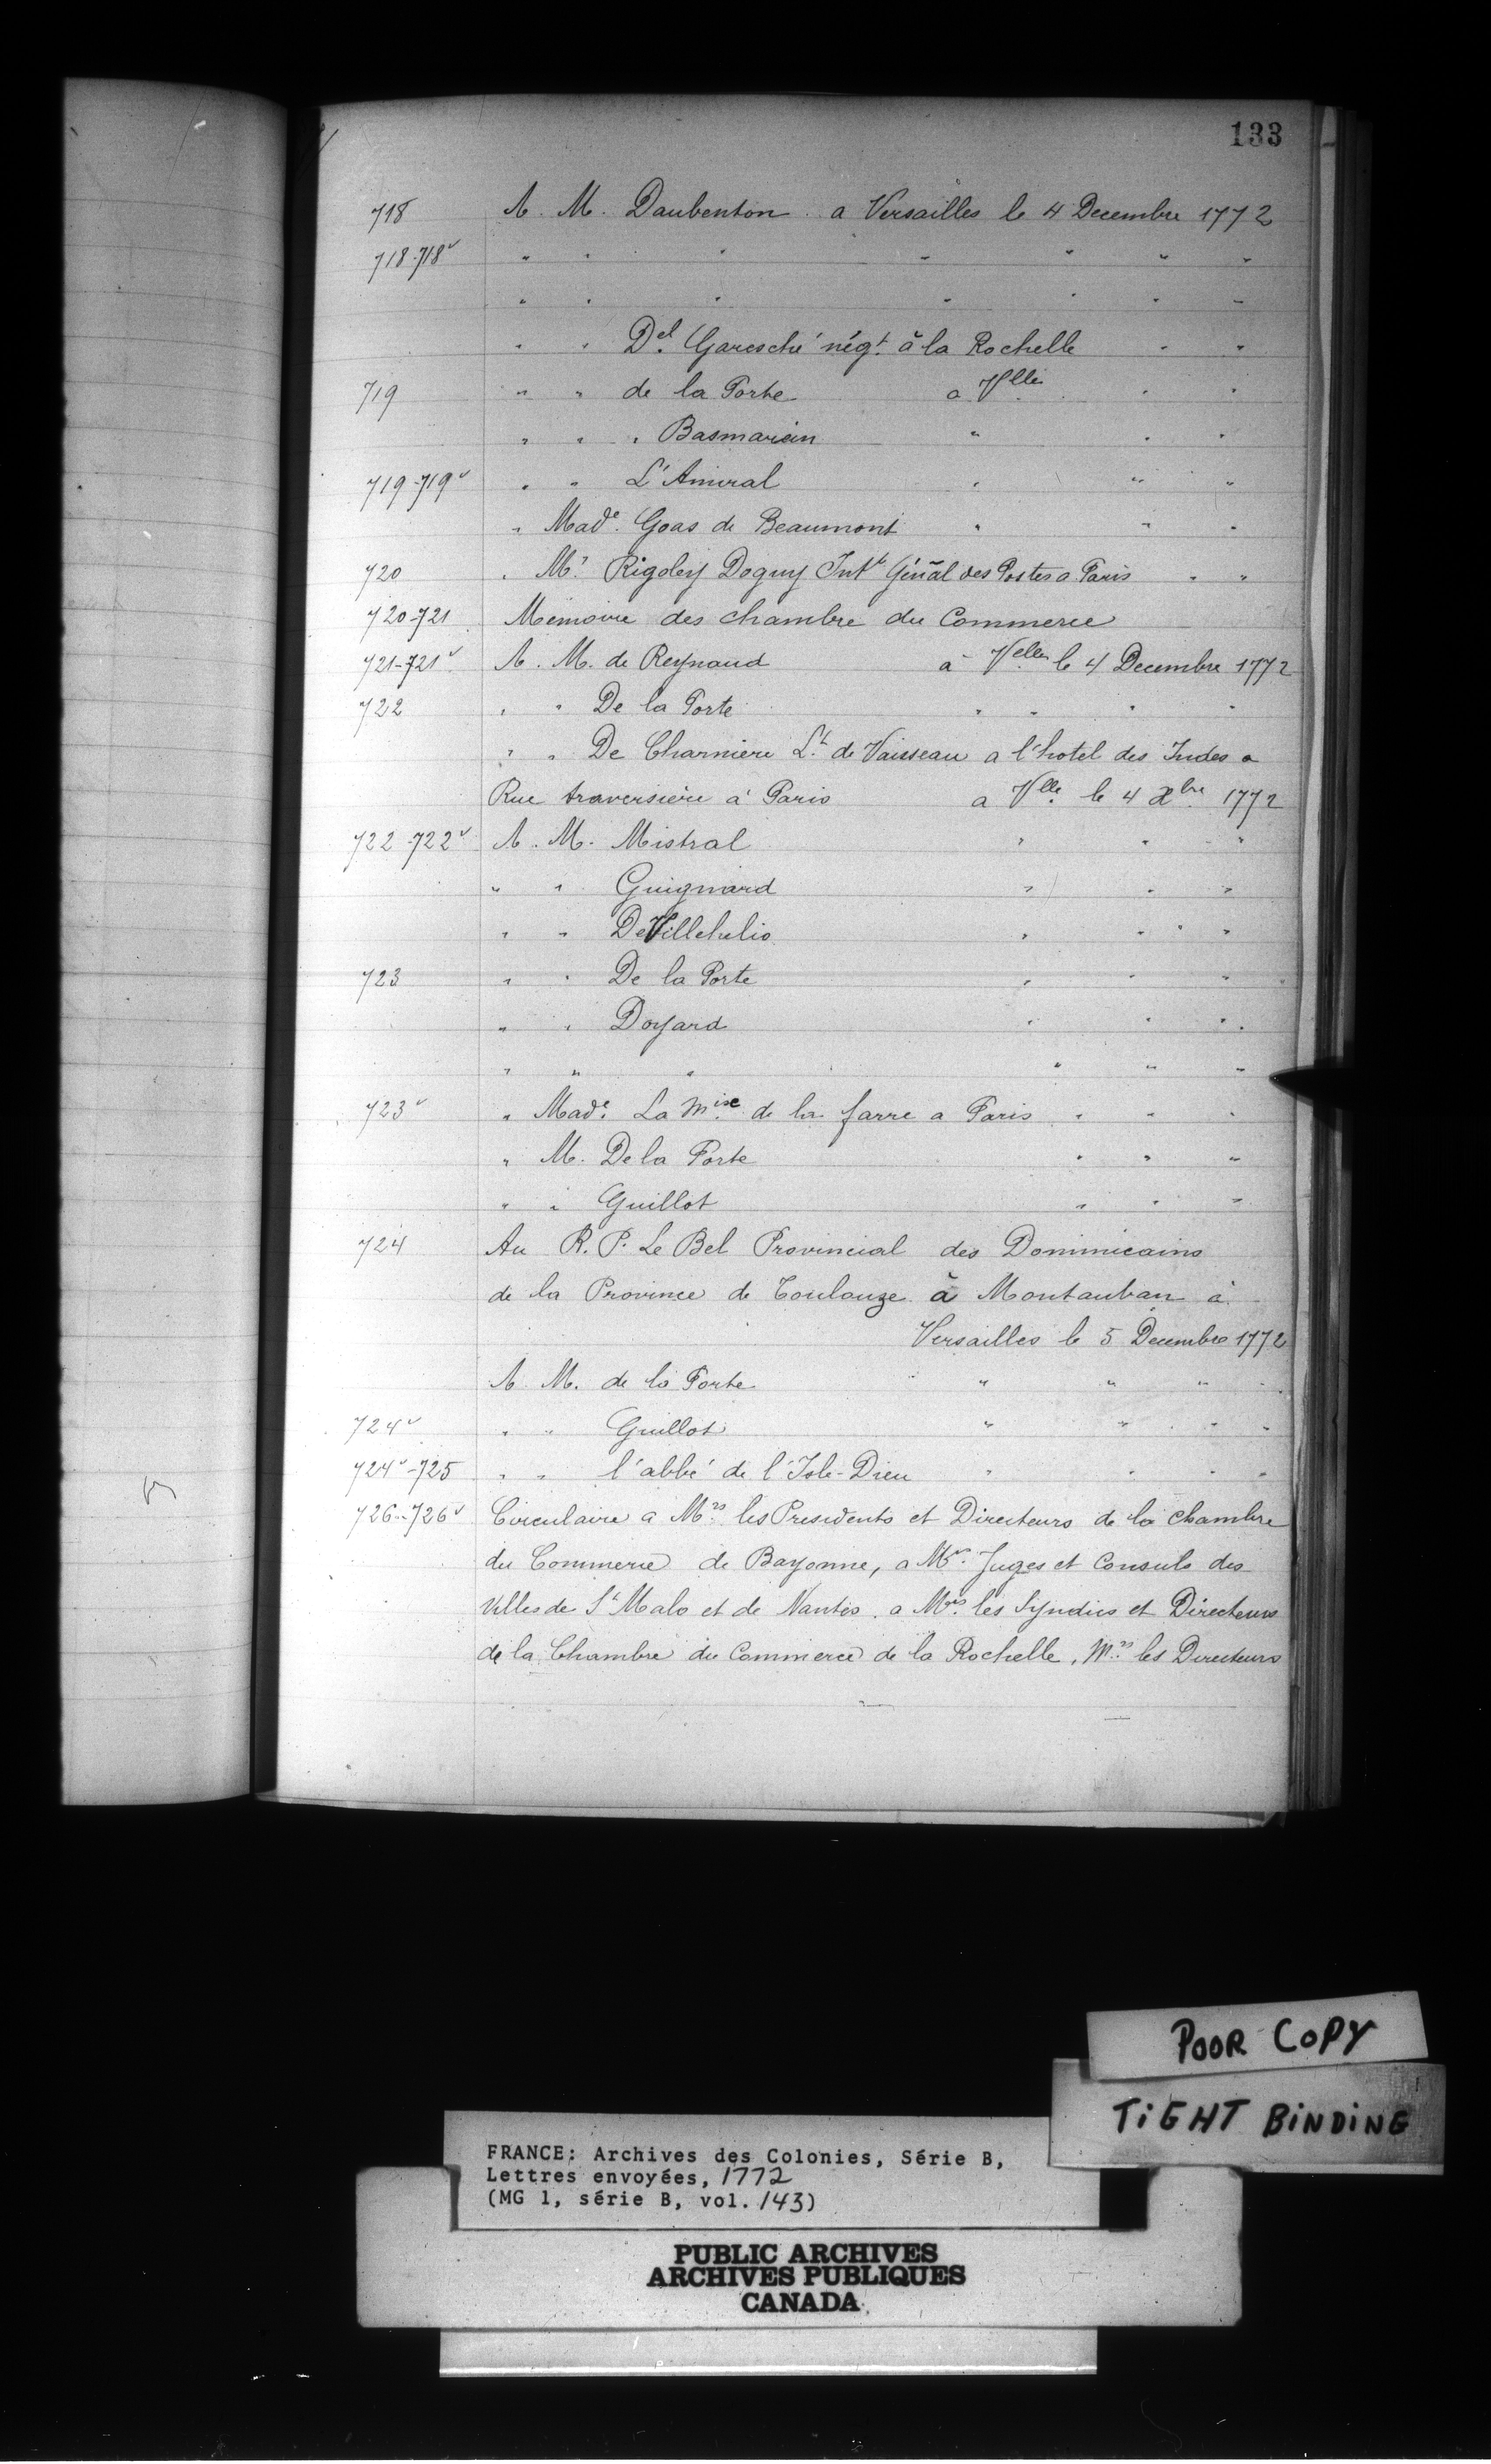 133
718 A. M. Daubenton a Versailles le 4 Decembre 1772
718-718v " " " " " " "
" " " " " " "
" " Del Garesché négt. à la Rochelle " "
719 " " de la Porte a Vlle " "
" " " Basmarein " " "
719-719v " " L'Amiral " " "
" Made. Goas de Beaumont " " "
720 " Mr. Rigoley Dogny Intt Génal des Postes a Paris " "
720-721 Memoire des chambre du Commerce
721-721v A. M. de Reynaud à Velles le 4 Decembre 1772
722 " " De la Porte " " " "
" " De Charniere Lt. de Vaisseau a l'hotel des Indes a
Rue traversière à Paris a Vlle le 4 Xbre 1772
722-722v A. M. Mistral " " "
" " Guignard " " "
" " De Villehelio " " " "
723 " " De la Porte " " "
" " Doyard " " "
" " " " " "
723v " Made. La Mise de la farre a Paris " " "
" M. De la Porte " " "
" " Guillot " " "
724 Au R. P. Le Bel Provincial des Dominicains
de la Province de Toulouze à Montauban à
Versailles le 5 Decembre 1772
A M. de la Porte " " " "
724v " " Guillot " " " "
724v-725 " " l'abbé de l'Isle-Dieu " " " "
726-726v Circulaire a Mrs les Presidents et Directeurs de la Chambre
du Commerce de Bayonne, a Mrs. Juges et Consuls des
Villes de St Malo et de Nantes. a Mrs. les Syndics et Directeurs
de la Chambre du Commerce de la Rochelle, Mrs les Directeurs
POOR COPY
TIGHT BINDING
FRANCE: Archives des Colonies, Série B,
Lettres envoyées, 1772
(MG 1, série B, vol. 143)
PUBLIC ARCHIVES
ARCHIVES PUBLIQUES
CANADA